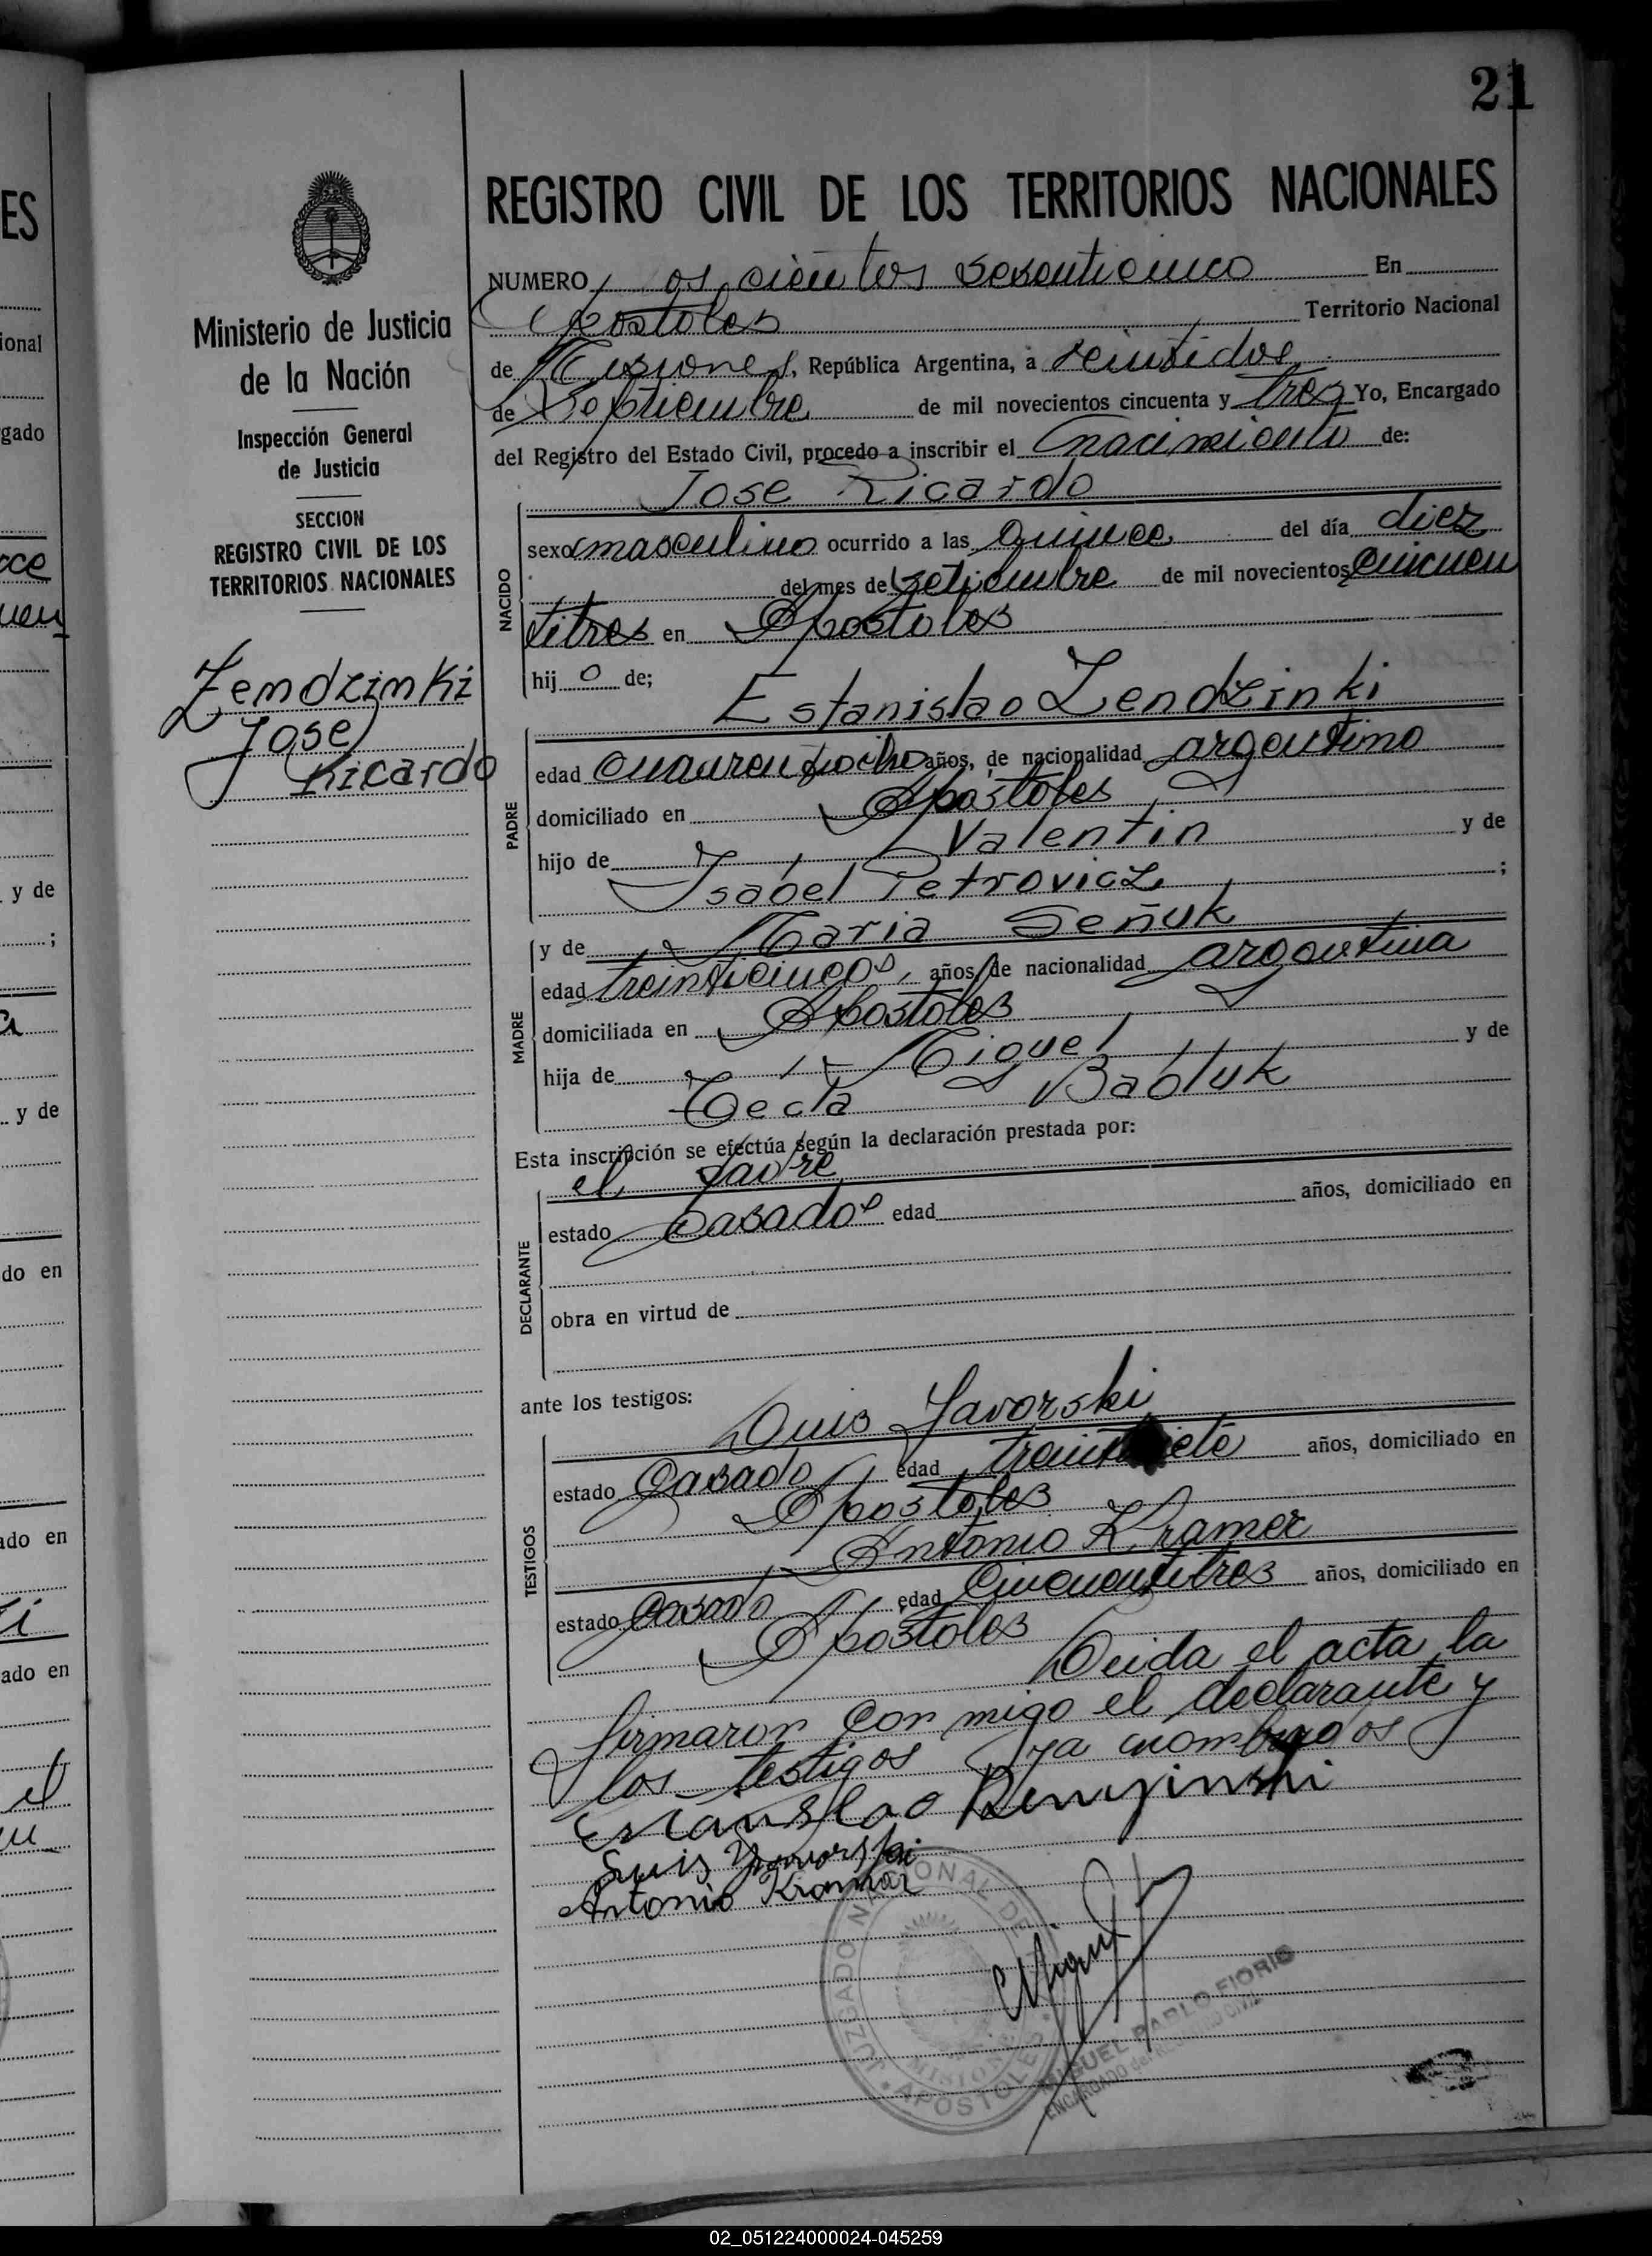 21
REGISTRO CIVIL DE LOS TERRITORIOS NACIONALES
NUMERO os cientos sesenticinco En
Apostoles Territorio Nacional
de Misiones, República Argentina, a veintidos
de Septiembre de mil novecientos cincuenta y tres Yo, Encargado
del Registro del Estado Civil, procedo a inscribir el nacimiento de:
Jose Ricardo
sexo masculino ocurrido a las quince del día diez
del mes de Setiembre de mil novecientos cincuen
titres en Apostoles
hij o de;
NACIDO
Estanislao Zendzinki
edad cuarentiocho años, de nacionalidad argentino
domiciliado en Apostoles
hijo de Valentin y de
Isabel Petrovicz ;
PADRE
y de Maria Señuk
edad treinticinco, años, de nacionalidad argentina
domiciliada en Apostoles
hija de Miguel y de
Tecla Babluk
MADRE
Esta inscripción se efectúa según la declaración prestada por:
el padre
estado Casado edad años, domiciliado en
obra en virtud de
DECLARANTE
ante los testigos:
Luis Javorski
estado Casado edad años, domiciliado en
Apostoles
Antonio Kramer
estado Casado edad Cincuentitres años, domiciliado en
Apostoles
TESTIGOS
Leida el acta la
firmaron con migo el declarante y
los testigos ya nombrados
Estanislao
Luis Yavorski
Antonio Kramar
JUZGADO NACIONAL DE
MISIONES
APOSTOLES
MIGUEL PABLO FIORIO
ENCARGADO del REGISTRO CIVIL
Ministerio de Justicia
de la Nación
Inspección General
de Justicia
SECCION
REGISTRO CIVIL DE LOS
TERRITORIOS NACIONALES
Zendzinki
Jose
Ricardo
ES
ional
gado
y de
;
y de
do en
ado en
ado en
el
02_051224000024-045259